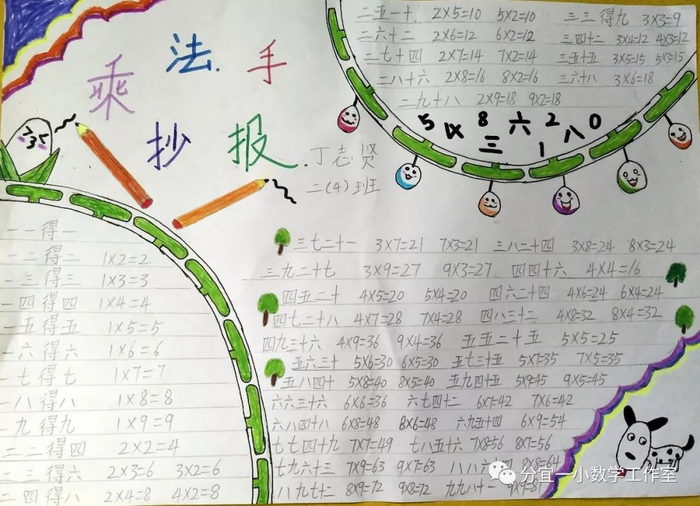 乘法手
抄报
丁志贤
二(4)班
二五一十 2×5=10 5×2=10 三三得九 3×3=9
二六十二 2×6=12 6×2=12 三四十二 3×4=12 4×3=12
二七十四 2×7=14 7×2=14 三五十五 3×5=15 5×3=15
二八十六 2×8=16 8×2=16 三六十八 3×6=18
二九十八 2×9=18 9×2=18
5 1 8 三 六 2 1 八 0
一一得一
一二得二 1×2=2
一三得三 1×3=3
一四得四 1×4=4
一五得五 1×5=5
一六得六 1×6=6
一七得七 1×7=7
一八得八 1×8=8
一九得九 1×9=9
二二得四 2×2=4
二三得六 2×3=6 3×2=6
二四得八 2×4=8 4×2=8
三七二十一 3×7=21 7×3=21 三八二十四 3×8=24 8×3=24
三九二十七 3×9=27 9×3=27 四四十六 4×4=16
四五二十 4×5=20 5×4=20 四六二十四 4×6=24 6×4=24
四七二十八 4×7=28 7×4=28 四八三十二 4×8=32 8×4=32
四九三十六 4×9=36 9×4=36 五五二十五 5×5=25
五六三十 5×6=30 6×5=30 五七三十五 5×7=35 7×5=35
五八四十 5×8=40 8×5=40 五九四十五 5×9=45 9×5=45
六六三十六 6×6=36 六七四十二 6×7=42 7×6=42
六八四十八 6×8=48 8×6=48 六九五十四 6×9=54
七七四十九 7×7=49 七八五十六 7×8=56 8×7=56
七九六十三 7×9=63 9×7=63 八八六十四 8×8=64
八九七十二 8×9=72 9×8=72 九九八十一 9×9=81
分宜一小数学工作室